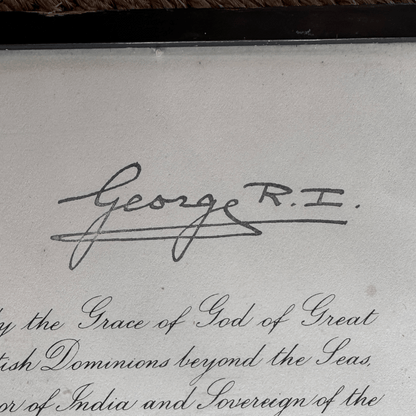 George R. I.
by the Grace of God of Great
tish Dominions beyond the Seas,
or of India and Sovereign of the